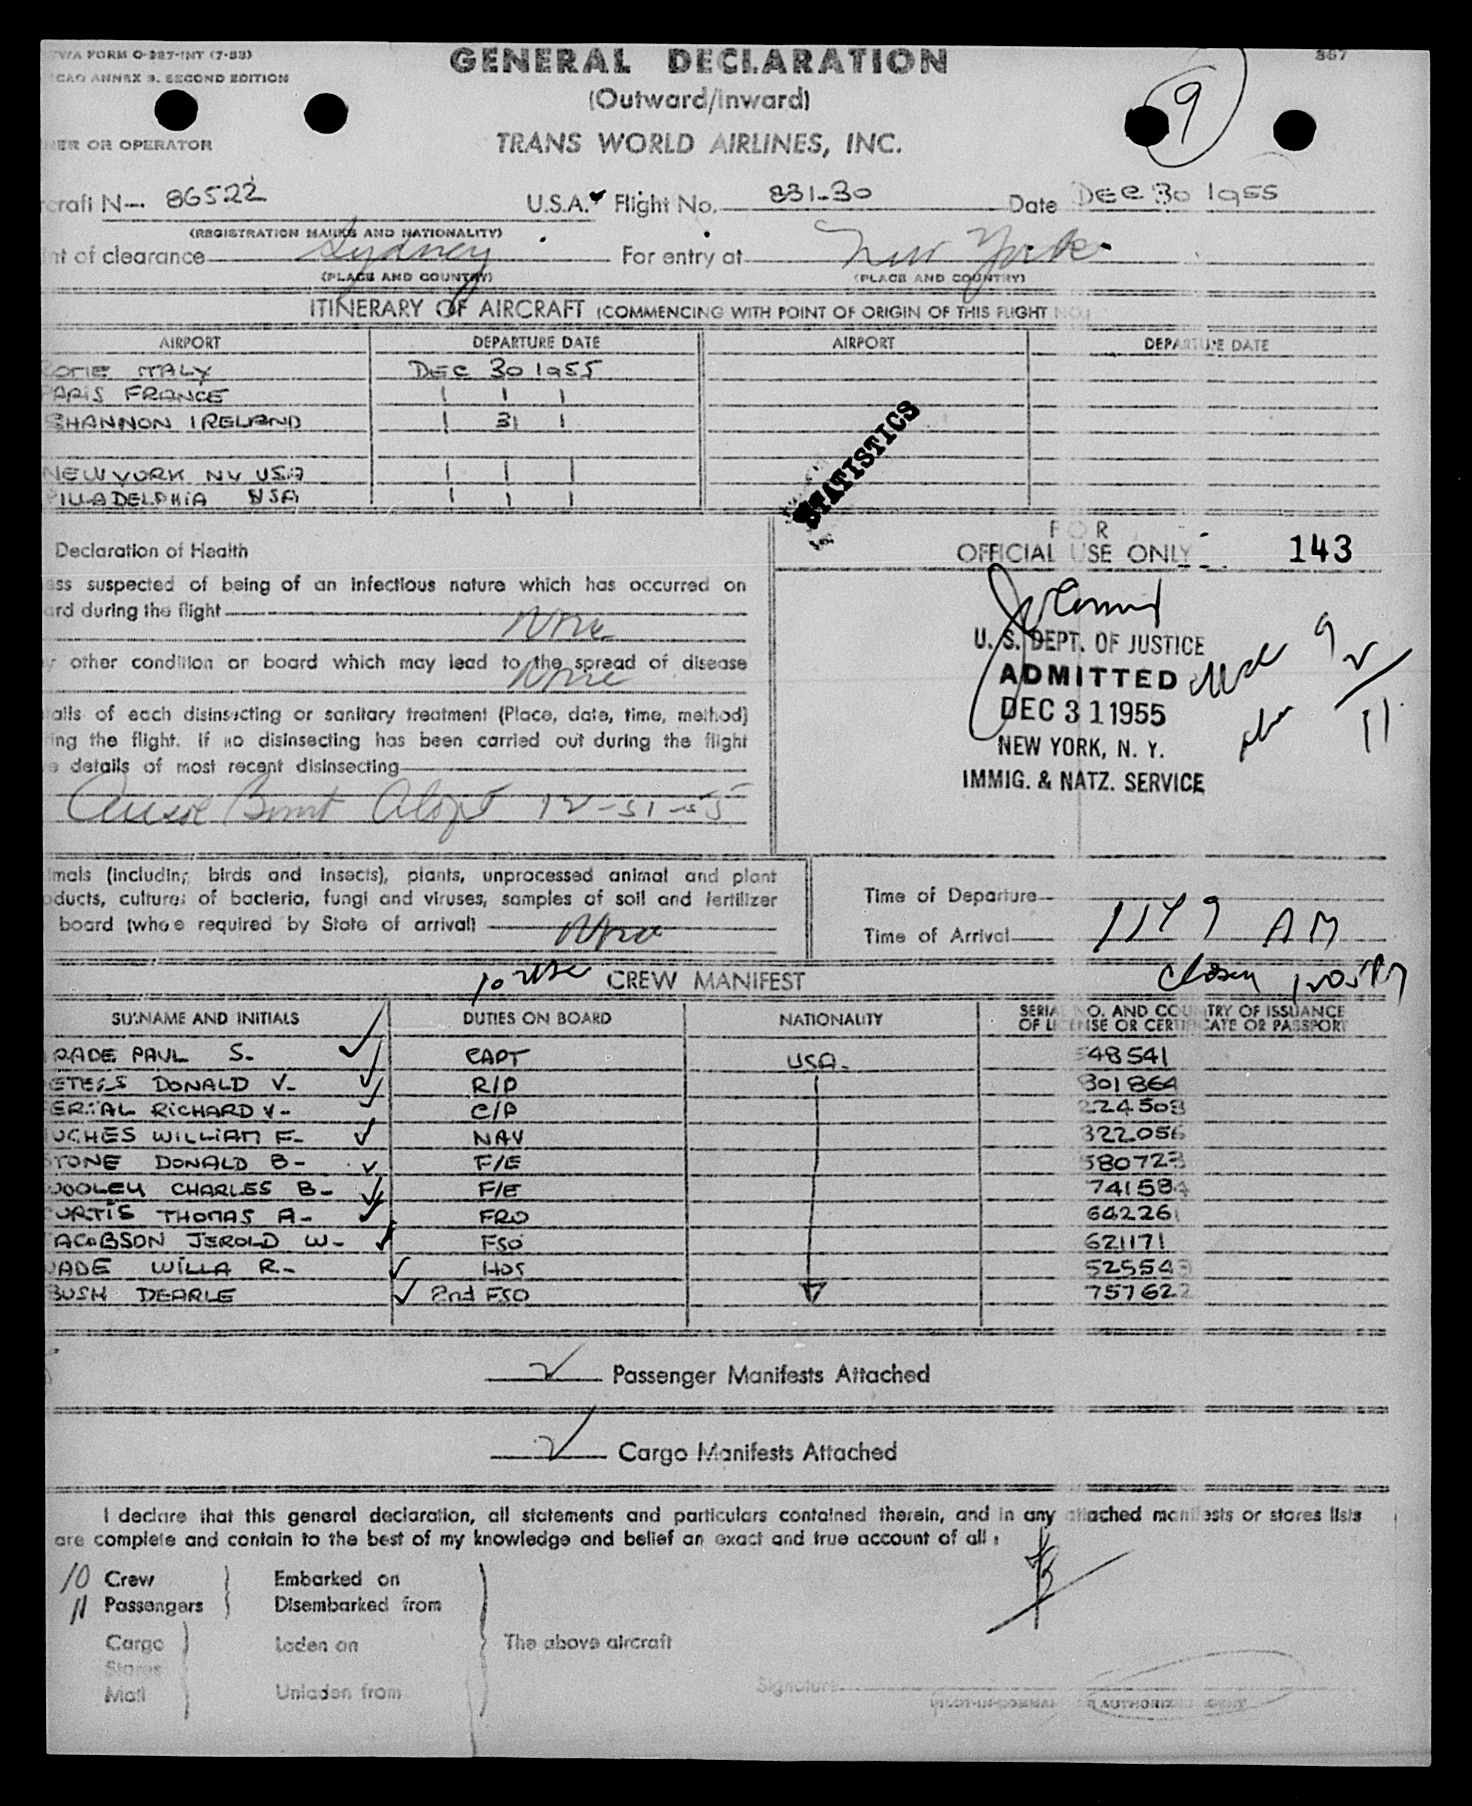 TWA FORM O-927-INT (7-53)
ICAO ANNEX 9. SECOND EDITION
GENERAL DECLARATION
(Outward/Inward)
TRANS WORLD AIRLINES, INC.
9
NER OR OPERATOR
craft N— 86522 U.S.A. Flight No. 831-30 Date DEC 30 1955
(REGISTRATION MARKS AND NATIONALITY)
nt of clearance Sydney For entry at New York
(PLACE AND COUNTRY) (PLACE AND COUNTRY)
ITINERARY OF AIRCRAFT (COMMENCING WITH POINT OF ORIGIN OF THIS FLIGHT NO.)
AIRPORT DEPARTURE DATE AIRPORT DEPARTURE DATE
ROME ITALY DEC 30 1955
PARIS FRANCE
SHANNON IRELAND 31
NEW YORK NY USA
PILLADELPHIA USA
STATISTICS
Declaration of Health
ess suspected of being of an infectious nature which has occurred on
ard during the flight None
y other condition on board which may lead to the spread of disease
None
tails of each disinsecting or sanitary treatment (Place, date, time, method)
ring the flight. If no disinsecting has been carried out during the flight
e details of most recent disinsecting
12-31-55
FOR
OFFICIAL USE ONLY 143
U. S. DEPT. OF JUSTICE
ADMITTED
DEC 31 1955
NEW YORK, N. Y.
IMMIG. & NATZ. SERVICE
9
11
imals (including birds and insects), plants, unprocessed animal and plant
oducts, cultures of bacteria, fungi and viruses, samples of soil and fertilizer
board (where required by State of arrival) None
Time of Departure
Time of Arrival 1149 AM
CREW MANIFEST
SURNAME AND INITIALS DUTIES ON BOARD NATIONALITY SERIAL NO. AND COUNTRY OF ISSUANCE
OF LICENSE OR CERTIFICATE OR PASSPORT
RADE PAUL S. CAPT USA 48541
ETERS DONALD V. R/P 301864
RICHARD V. C/P 224508
UGHES WILLIAM F. NAV 322056
STONE DONALD B. F/E 580723
WOOLEY CHARLES B. F/E 741584
CURTIS THOMAS A. FRO 642261
JACOBSON JEROLD W. FSO 621171
WADE WILLA R. HOS 525543
BUSH DEARLE 2nd FSO 757622
Passenger Manifests Attached
Cargo Manifests Attached
I declare that this general declaration, all statements and particulars contained therein, and in any attached manifests or stores lists
are complete and contain to the best of my knowledge and belief an exact and true account of all :
10 Crew Embarked on
11 Passengers Disembarked from
Cargo Laden on The above aircraft
Stores
Mail Unladen from
Signature
PILOT-IN-COMMAND OR AUTHORIZED AGENT